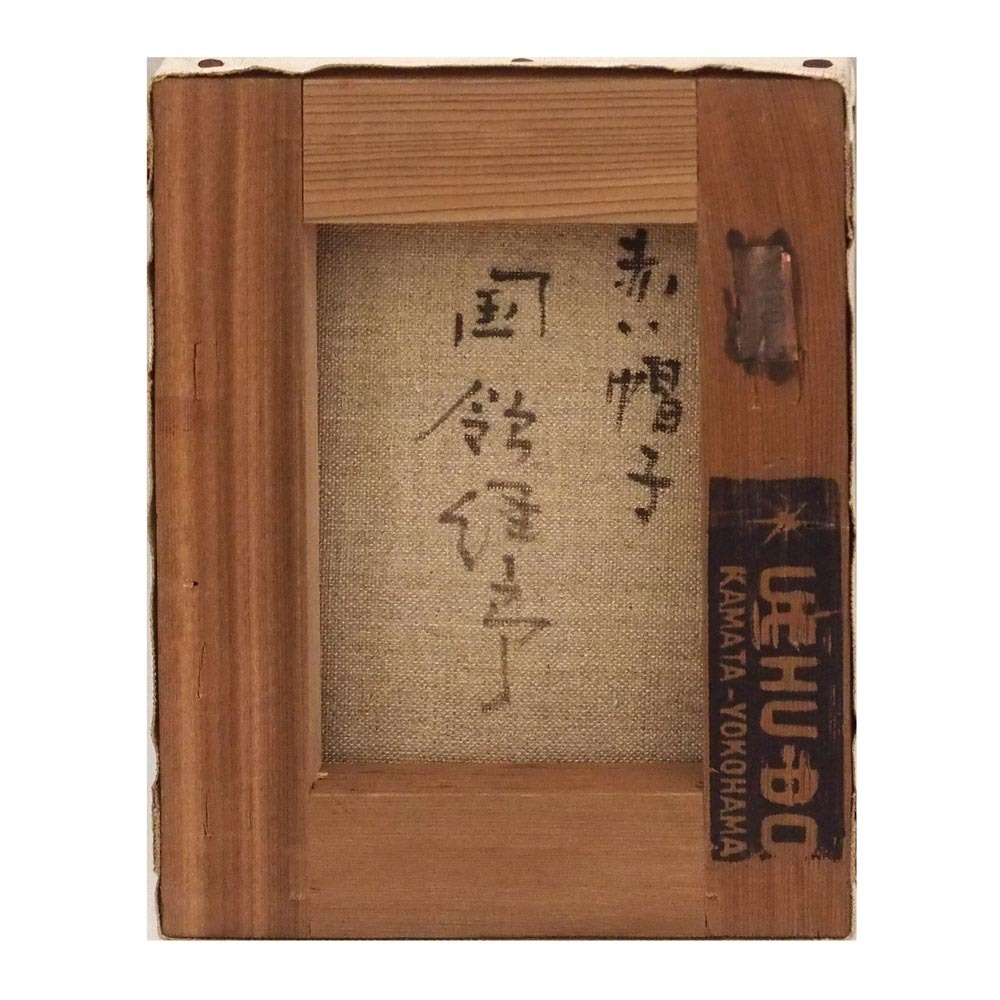 赤い帽子
国領経郎
UEHU-DO
KAMATA-YOKOHAMA